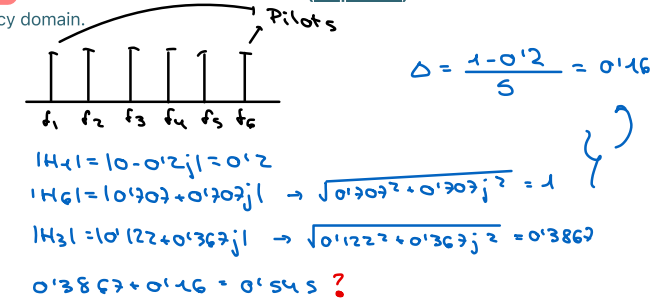 cy domain.
Pilots
Δ = 1-0'2 / 5 = 0'16
f1 f2 f3 f4 f5 f6
|H1| = |0-0'2j| = 0'2
|H6| = |0'707+0'707j| → √0'707² + 0'707j² = 1
|H3| = |0'122+0'367j| → √0'122² + 0'367j² = 0'3867
0'3867+0'16 = 0'545 ?